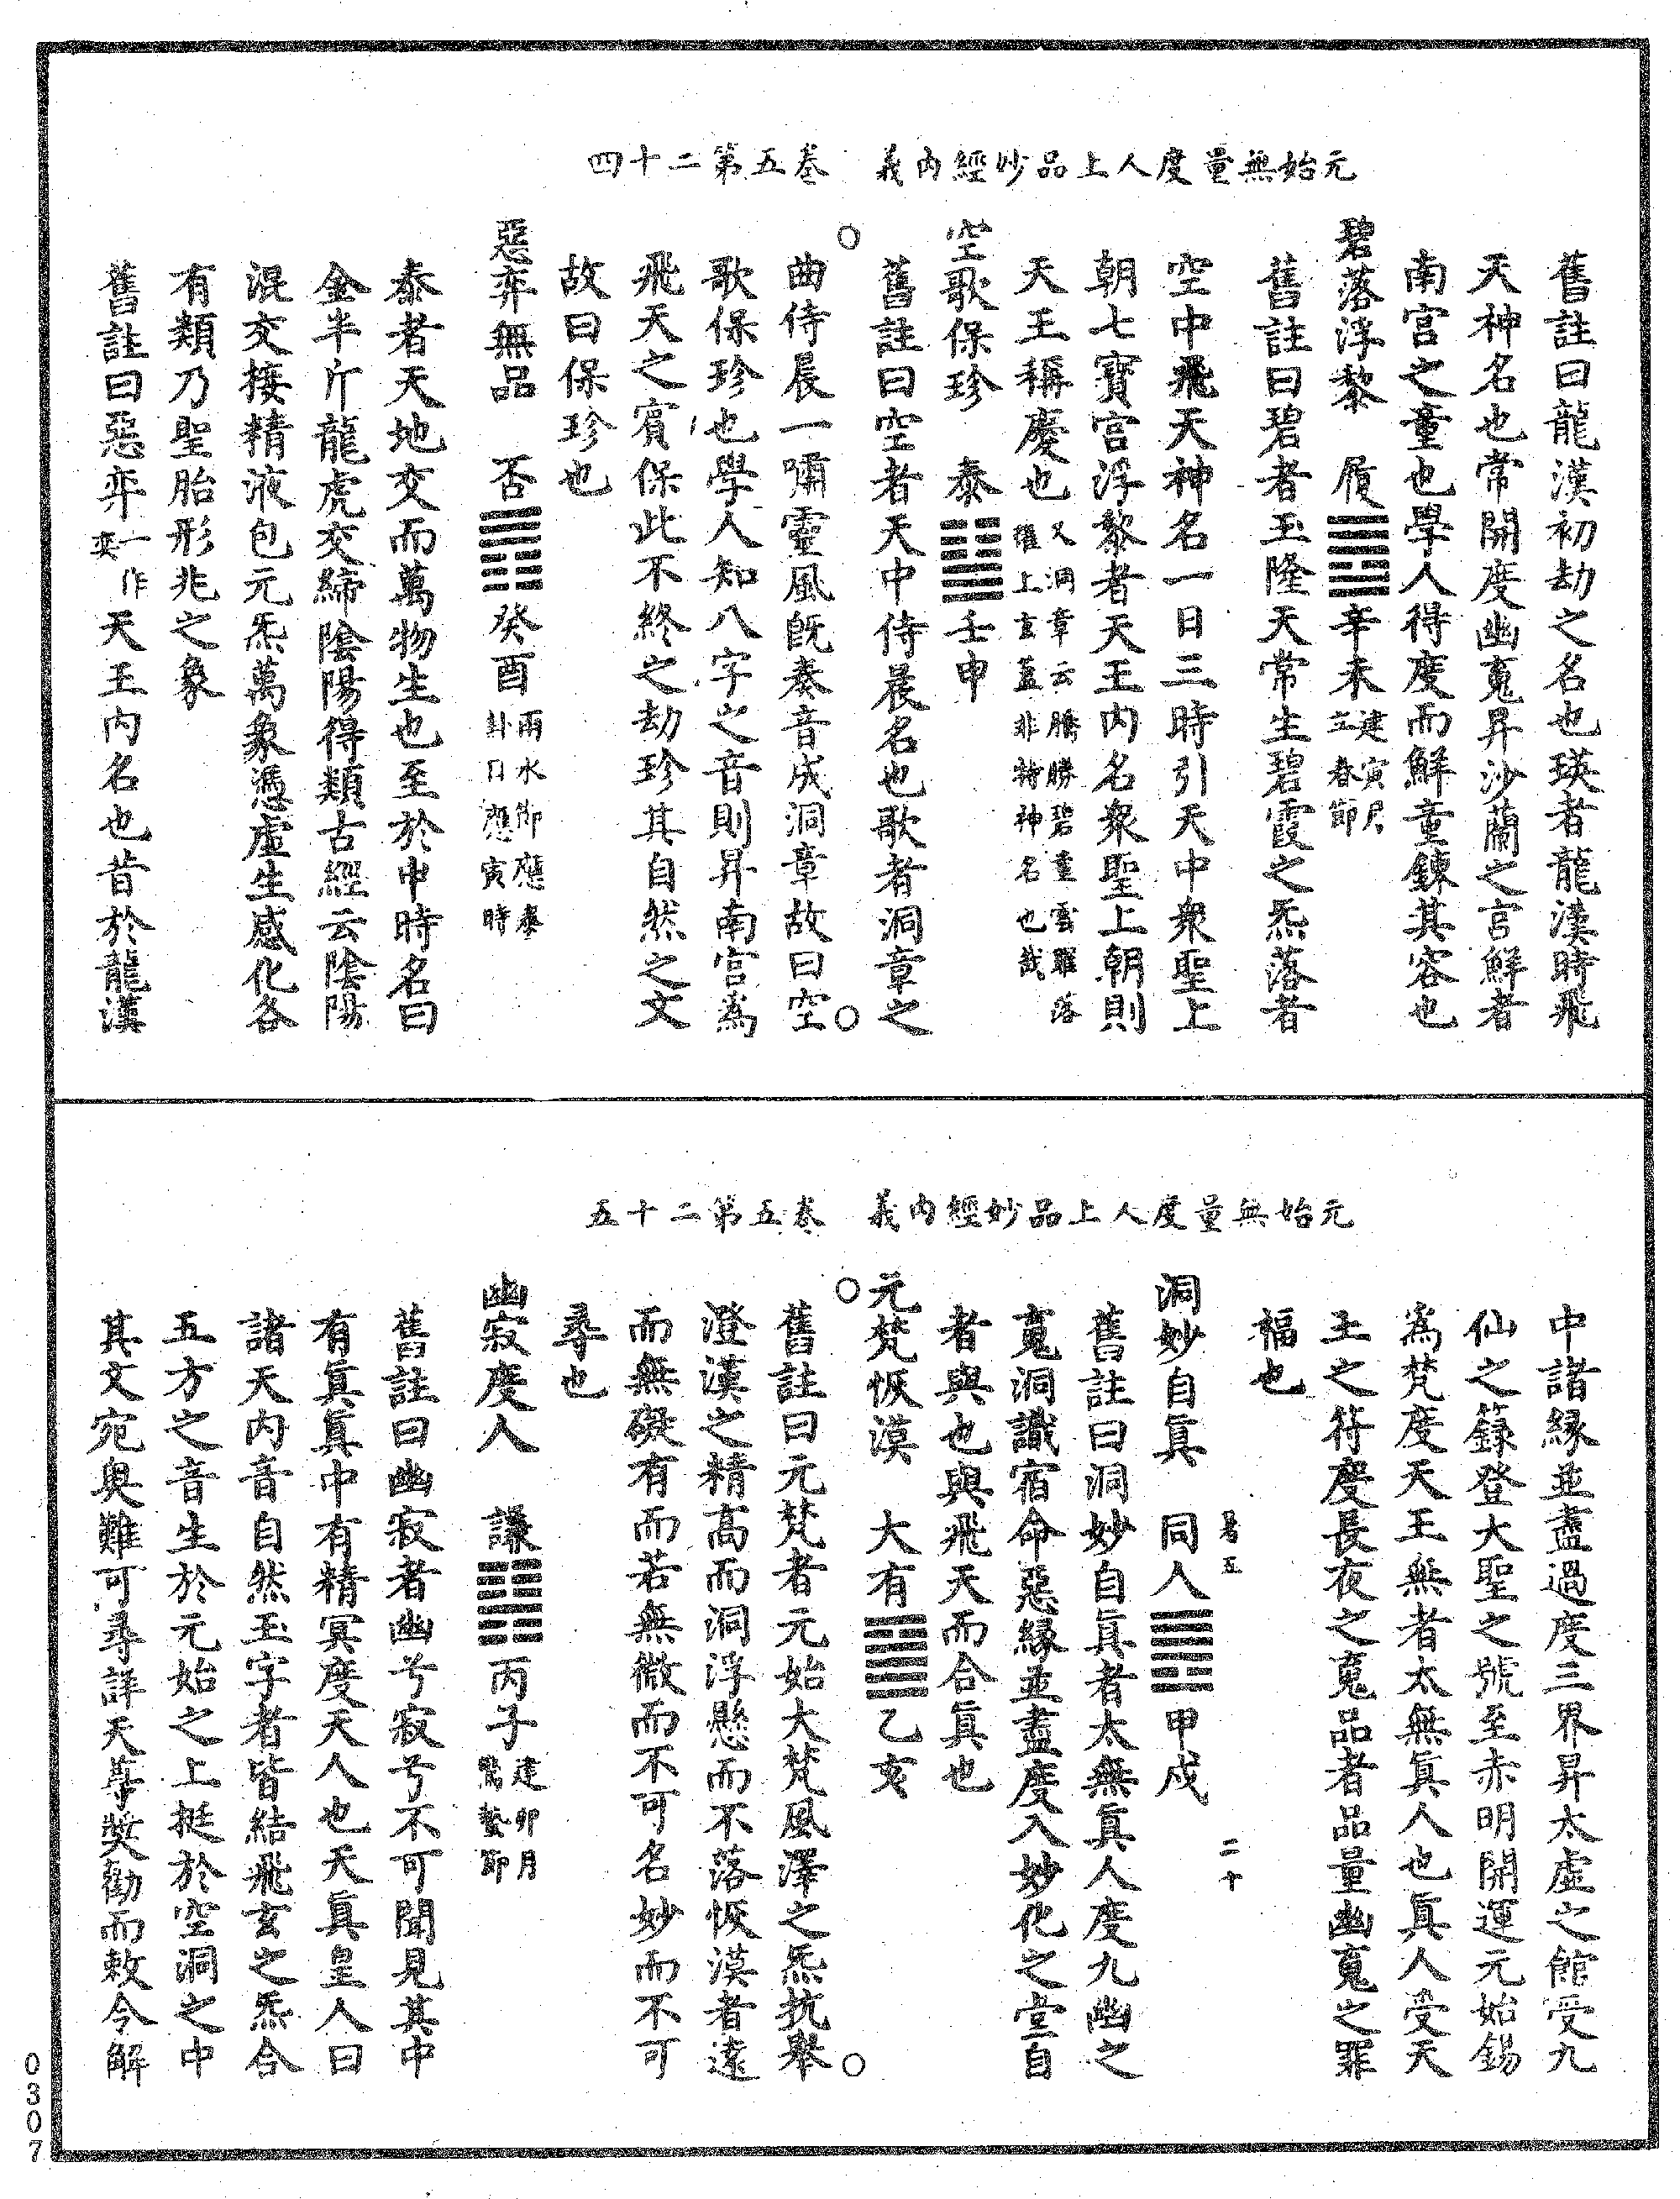 元始無量度人上品妙經內義　卷五第二十四
舊註曰龍漢初劫之名也瑛者龍漢時飛
天神名也常開度幽䰟昇沙蘭之宮鮮者
南宮之童也學人得度而鮮童鍊其容也
碧落浮黎　履䷉辛未建寅月立春節
舊註曰碧者玉隆天常生碧霞之炁落者
空中飛天神名一日三時引天中衆聖上
朝七寶宮浮黎者天王內名衆聖上朝則
天王稱慶也又洞章云騰勝碧重雲羅落羅上玄蓋非特神名也哉
空歌保珍　泰䷊壬申
舊註曰空者天中侍晨名也歌者洞章之
曲侍晨一嘯靈風旣奏音成洞章故曰空
歌保珍也學人知八字之音則昇南宮為
飛天之賓保此不終之劫珍其自然之文
故曰保珍也
惡弈無品　否䷋癸酉雨水節應泰卦日應寅時
泰者天地交而萬物生也至於申時名曰
金半斤龍虎交締陰陽得類古經云陰陽
混交接精液包元炁萬象憑虛生感化各
有類乃聖胎形兆之象
舊註曰惡弈一作奕天王內名也昔於龍漢
元始無量度人上品妙經內義　卷五第二十五
中諸緣並盡過度三界昇太虛之館受九
仙之籙登大聖之號至赤明開運元始錫
為梵度天王無者太無眞人也眞人受天
王之符度長夜之䰟品者品量幽䰟之罪
福也
暑五　二十
洞妙自眞　同人䷌甲戌
舊註曰洞妙自眞者太無眞人度九幽之
䰟洞識宿命惡緣並盡度入妙化之堂自
者與也與飛天而合眞也
元梵恢漠　大有䷍乙亥
舊註曰元梵者元始大梵風澤之炁抗舉
澄漢之精高而洞浮懸而不落恢漠者遠
而無礙有而若無微而不可名妙而不可
尋也
幽寂度人　謙䷎丙子建卯月驚蟄節
舊註曰幽寂者幽兮寂兮不可聞見其中
有眞眞中有精冥度天人也天眞皇人曰
諸天內音自然玉字者皆結飛玄之炁合
五方之音生於元始之上挺於空洞之中
其文宛奥難可尋詳天尊奬勸而敕令解
0307